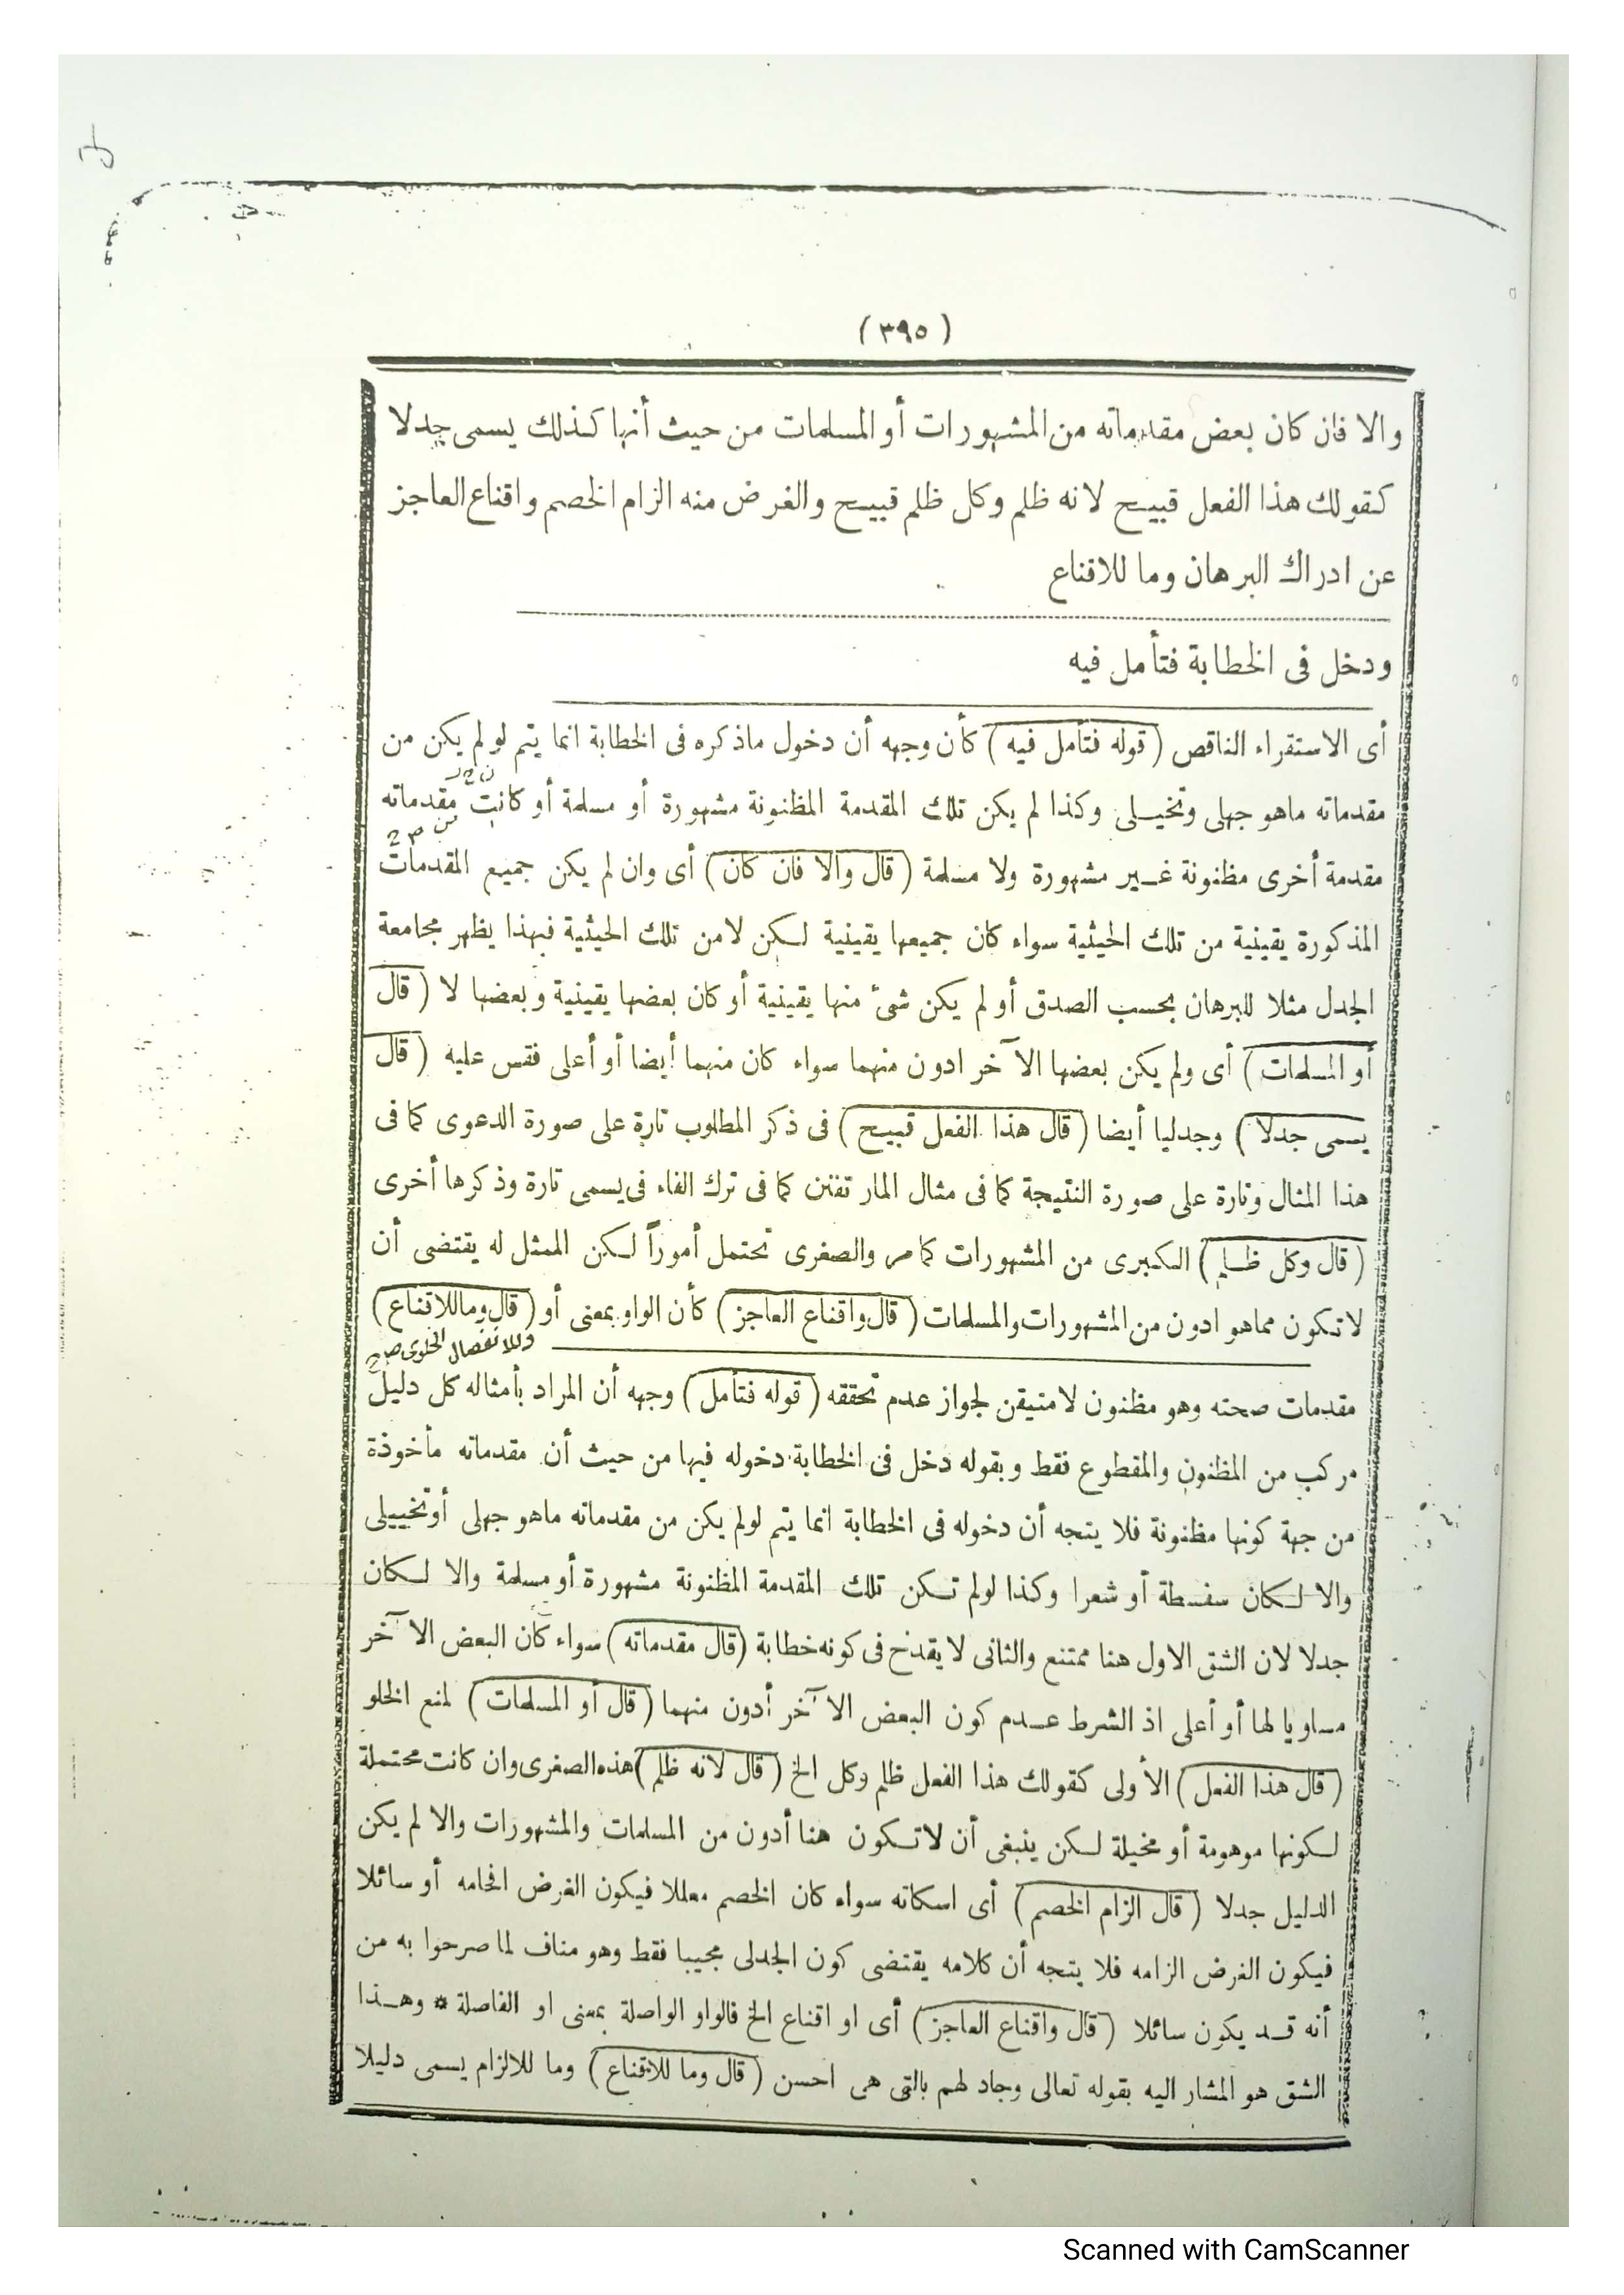 (٣٩٥)
والا فان كان بعض مقدماته من المشهورات أو المسلمات من حيث أنها كذلك يسمى جدلا
كقولك هذا الفعل قبيح لانه ظلم وكل ظلم قبيح والغرض منه الزام الخصم واقناع العاجز
عن ادراك البرهان وما للاقناع
ودخل فى الخطابة فتأمل فيه
أى الاستقراء الناقص (قوله فتأمل فيه) كأن وجهه أن دخول ماذكره فى الخطابة انما يتم لو لم يكن من
مقدماته ماهو جهلى وتخييلى وكذا لم يكن تلك المقدمة المظنونة مشهورة أو مسلمة أو كانت مقدماته
مقدمة أخرى مظنونة غير مشهورة ولا مسلمة (قال والا فان كان) أى وان لم يكن جميع المقدمات
المذكورة يقينية من تلك الحيثية سواء كان جميعها يقينية لكن لامن تلك الحيثية فبهذا يظهر مجامعة
الجدل مثلا للبرهان بحسب الصدق أو لم يكن شئ منها يقينية أو كان بعضها يقينية وبعضها لا (قال
أو المسلمات) أى ولم يكن بعضها الآخر ادون منهما سواء كان منهما أيضا أو أعلى فقس عليه (قال
يسمى جدلا) وجدليا أيضا (قال هذا الفعل قبيح) فى ذكر المطلوب تارة على صورة الدعوى كما فى
هذا المثال وتارة على صورة النتيجة كما فى مثال المار تفنن كما فى ترك الفاء فى يسمى تارة وذكرها أخرى
(قال وكل ظلم) الكبرى من المشهورات كما مر والصغرى تحتمل أموراً لكن الممثل له يقتضى أن
لاتكون مماهو ادون من المشهورات والمسلمات (قال واقناع العاجز) كأن الواو بمعنى أو (قال وماللاقناع)
وللانفصال الخلوى صح
مقدمات صحته وهو مظنون لامتيقن لجواز عدم تحققه (قوله فتأمل) وجهه أن المراد بأمثاله كل دليل
مركب من المظنون والمقطوع فقط وبقوله دخل فى الخطابة دخوله فيها من حيث أن مقدماته مأخوذة
من جهة كونها مظنونة فلا يتجه أن دخوله فى الخطابة انما يتم لولم يكن من مقدماته ماهو جهلى أوتخييلى
والا لكان سفسطة أو شعرا وكذا لولم تكن تلك المقدمة المظنونة مشهورة أو مسلمة والا لكان
جدلا لان الشق الاول هنا ممتنع والثانى لا يقدح فى كونه خطابة (قال مقدماته) سواء كان البعض الآخر
مساويا لها أو أعلى اذ الشرط عدم كون البعض الآخر أدون منهما (قال أو المسلمات) لمنع الخلو
(قال هذا الفعل) الأولى كقولك هذا الفعل ظلم وكل الخ (قال لانه ظلم) هذه الصغرى وان كانت محتملة
لكونها موهومة أو مخيلة لكن ينبغى أن لاتكون هنا أدون من المسلمات والمشهورات والا لم يكن
الدليل جدلا (قال الزام الخصم) أى اسكاته سواء كان الخصم معللا فيكون الغرض افحامه أو سائلا
فيكون الغرض الزامه فلا يتجه أن كلامه يقتضى كون الجدلى مجيبا فقط وهو مناف لما صرحوا به من
أنه قد يكون سائلا (قال واقناع العاجز) أى او اقناع الخ فالواو الواصلة بمعنى او الفاصلة * وهذا
الشق هو المشار اليه بقوله تعالى وجاد لهم بالتى هى احسن (قال وما للاقناع) وما للالزام يسمى دليلا
Scanned with CamScanner